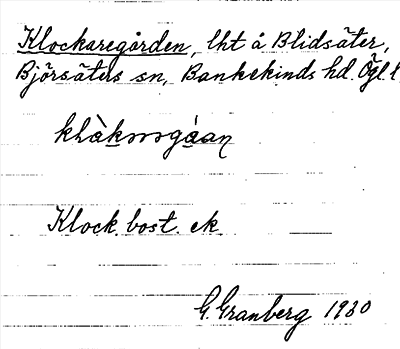 Klockaregården, lht å Blidsäter,
Björsäters sn, Bankekinds hd. Ögl.
Klock. bost. ek
G. Granberg 1930